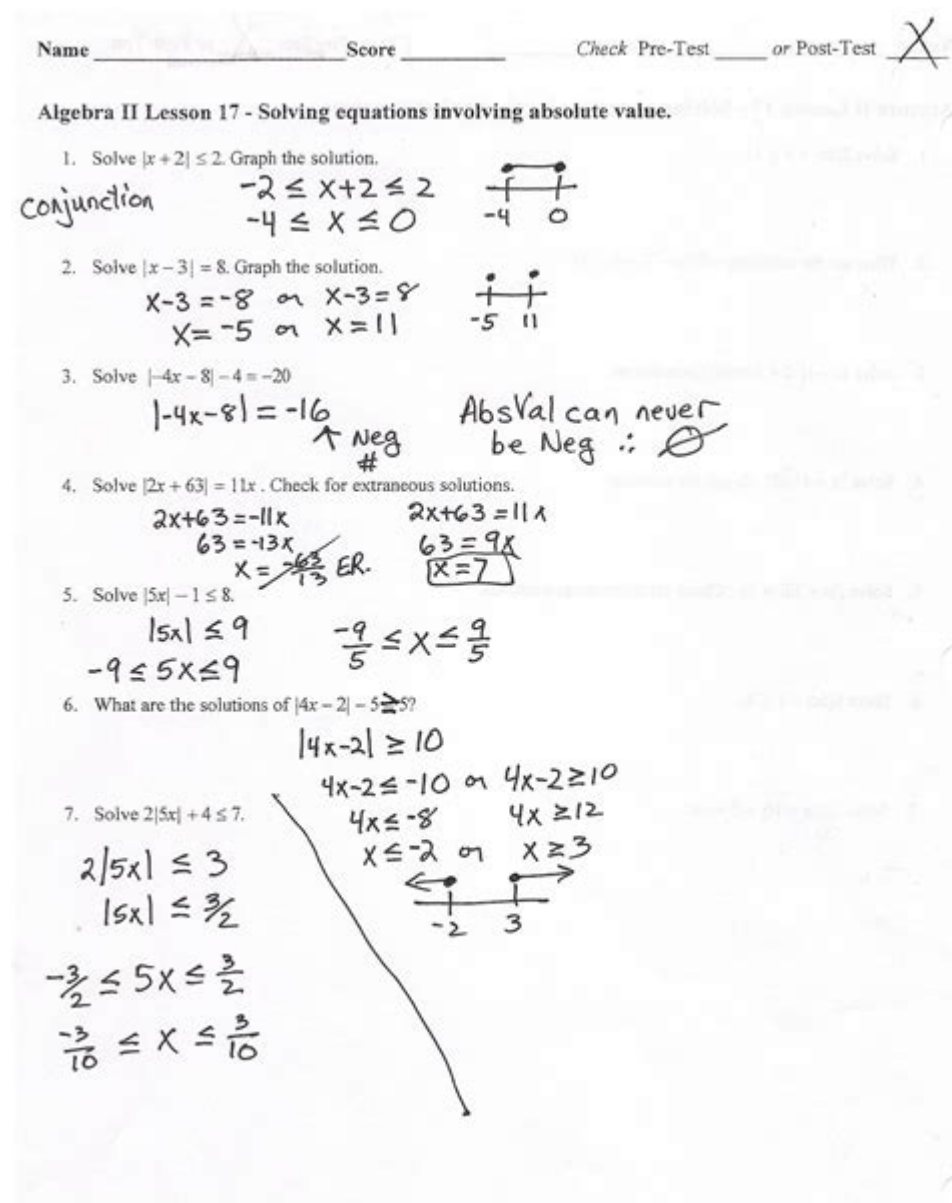 Name ____________ Score ________ Check Pre-Test ____ or Post-Test X
Algebra II Lesson 17 - Solving equations involving absolute value.
1. Solve |x + 2| ≤ 2. Graph the solution.
conjunction
-2 ≤ x+2 ≤ 2
-4 ≤ x ≤ 0
-4 0
2. Solve |x – 3| = 8. Graph the solution.
x-3 = -8 or x-3 = 8
x = -5 or x = 11
-5 11
3. Solve |–4x – 8| – 4 = –20
|-4x-8| = -16
↑ Neg
#
AbsVal can never
be Neg ∴ ∅
4. Solve |2x + 63| = 11x . Check for extraneous solutions.
2x+63 = -11x
63 = -13x
x = -63/13 ER.
2x+63 = 11x
63 = 9x
x = 7
5. Solve |5x| – 1 ≤ 8.
|5x| ≤ 9
-9 ≤ 5x ≤ 9
-9/5 ≤ x ≤ 9/5
6. What are the solutions of |4x – 2| – 5 ≥ 5?
|4x-2| ≥ 10
4x-2 ≤ -10 or 4x-2 ≥ 10
4x ≤ -8 4x ≥ 12
x ≤ -2 or x ≥ 3
-2 3
7. Solve 2|5x| + 4 ≤ 7.
2|5x| ≤ 3
|5x| ≤ 3/2
-3/2 ≤ 5x ≤ 3/2
-3/10 ≤ x ≤ 3/10